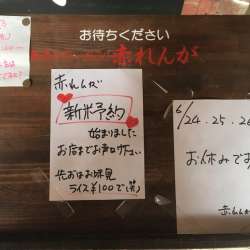 お待ちください
赤れんが
赤れんが
新米予約
始まりました
お店までお声かけ下さい
先ずはお味見
ライス¥100で(笑)
6/24.25.26
お休みです
赤れんが